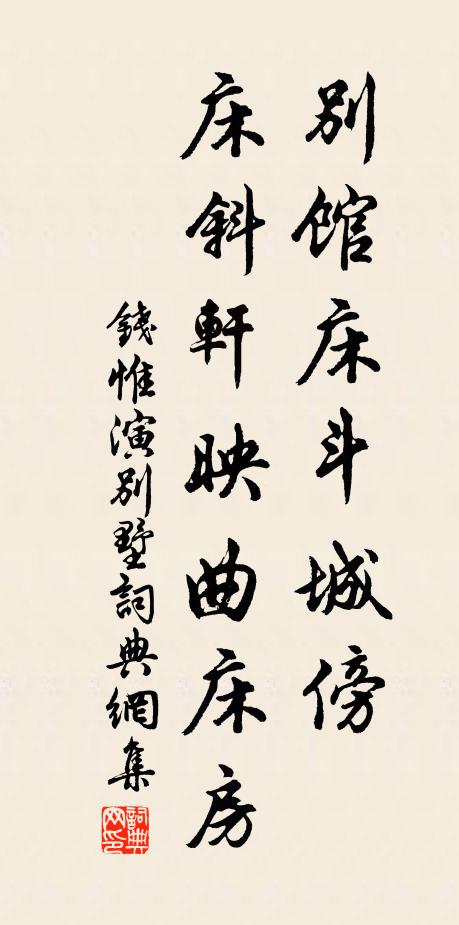 别馆床斗城傍
床斜軒映曲床房
錢惟演别墅詞典網集
詞典网印